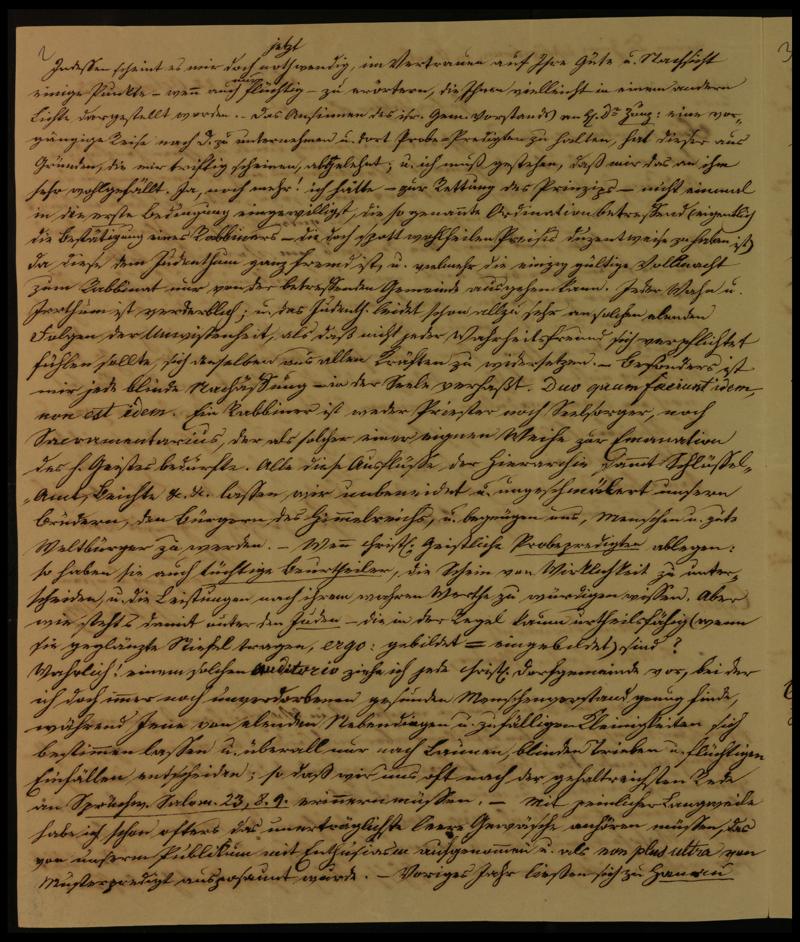 2
jetzt
Indessen scheint es mir doch nothwendig, im Vertrauen auf Ihre Güte u. Nachsicht
nur
einige Punkte – weñ auch flüchtig – zu erörtern, die Ihnen vielleicht in einem andern
Lichte dargestellt worden. – Das Ansinnen des isr. Gem. Vorstands an H. Dr Zunz: eine vor-
gängige Reise nach D. zu unternehmen u. dort Probe-Predigten zu halten, hat dieser aus
Gründen, die mir triftig scheinen, abgelehnt; u. ich muß gestehen, daß mir das an ihm
sehr wohlgefällt. Ja, noch mehr! ich hätte – zur Rettung des Prinzips – nicht einmal
in die erste Bedingung eingewilligt, die so genannte Ordination betreffend (eigentlich
die Bestätigung eines Rabbiners – die doch spott wohlfeilen Preises duzentweise zu haben ist)
da diese dem Judenthum ganz fremd ist, u. vielmehr die einzig gültige Vollmacht
zum Rabbinat nur von der betreffenden Gemeinde ausgehen kann. Jeder Wahn u.
Irrthum ist verderblich; u. das Judenth. leidet schon allzu sehr an solchen elenden
Folgen der Unwissenheit, als daß nicht jeder Wahrheitsfreund sich verpflichtet
fühlen sollte, sich denselben aus allen Kräften zu widersetzen. – Besonders ist
mir jede blinde Nachäffung – in der Seele verhaßt. Duo quum faciunt idem,
non est idem. Ein Rabbiner ist weder Priester noch Seelsorger, noch
Sacramentarius, der als solcher einer eignen Weihe zur Emanation
des h. Geistes bedürfte. Alle diese Ausflüsse der Hierarchie sammt Schlüssel-
-Amt, Beichte &c. &c. lassen wir unbeneidet u. ungeschmälert unsern
Brüdern, den Bürgern des Himmelreichs, u. begnügen uns, Menschen u. gute
Weltbürger zu werden. – Weñ christl. Geistliche Probepredigten ablegen:
so haben sie auch tüchtige Beurtheiler, die Schein von Wirklichkeit zu unter-
scheiden u. die Leistungen nach ihrem wahren Werthe zu würdigen wissen. Aber
wie steht's damit unter den Juden – die in der Regel kaum urtheilsfähig (wenn
sie geglänzte Stiefel tragen, ergo: gebildet = eingebildet) sind?
Wahrlich! einem solchen Auditorio ziehe ich jede christl. Dorfgemeinde vor, bei der
ich doch immer noch unverdorbenen gesunden Menschenverstand genug finde,
während Jene von elenden Nebendingen u. zufälligen Kleinigkeiten sich
bestimmen lassen u. überall nur nach Launen, blinden Trieben u. flüchtigen
Einfällen entscheiden; so daß wir uns oft nach der gehaltreichsten Rede
an Sprüchw. Salom. 23, 8. 9. erinnern müssen. – Mit peinlicher Langeweile
habe ich schon öfters das unerträglichste leere Gewäsche anhören müssen, das
von unserm Publikum mit Enthusiasm aufgenommen u. als non plus ultra von
Musterpredigt ausposaunt wurde. – Voriges Jahr ließen sich zu Hanau